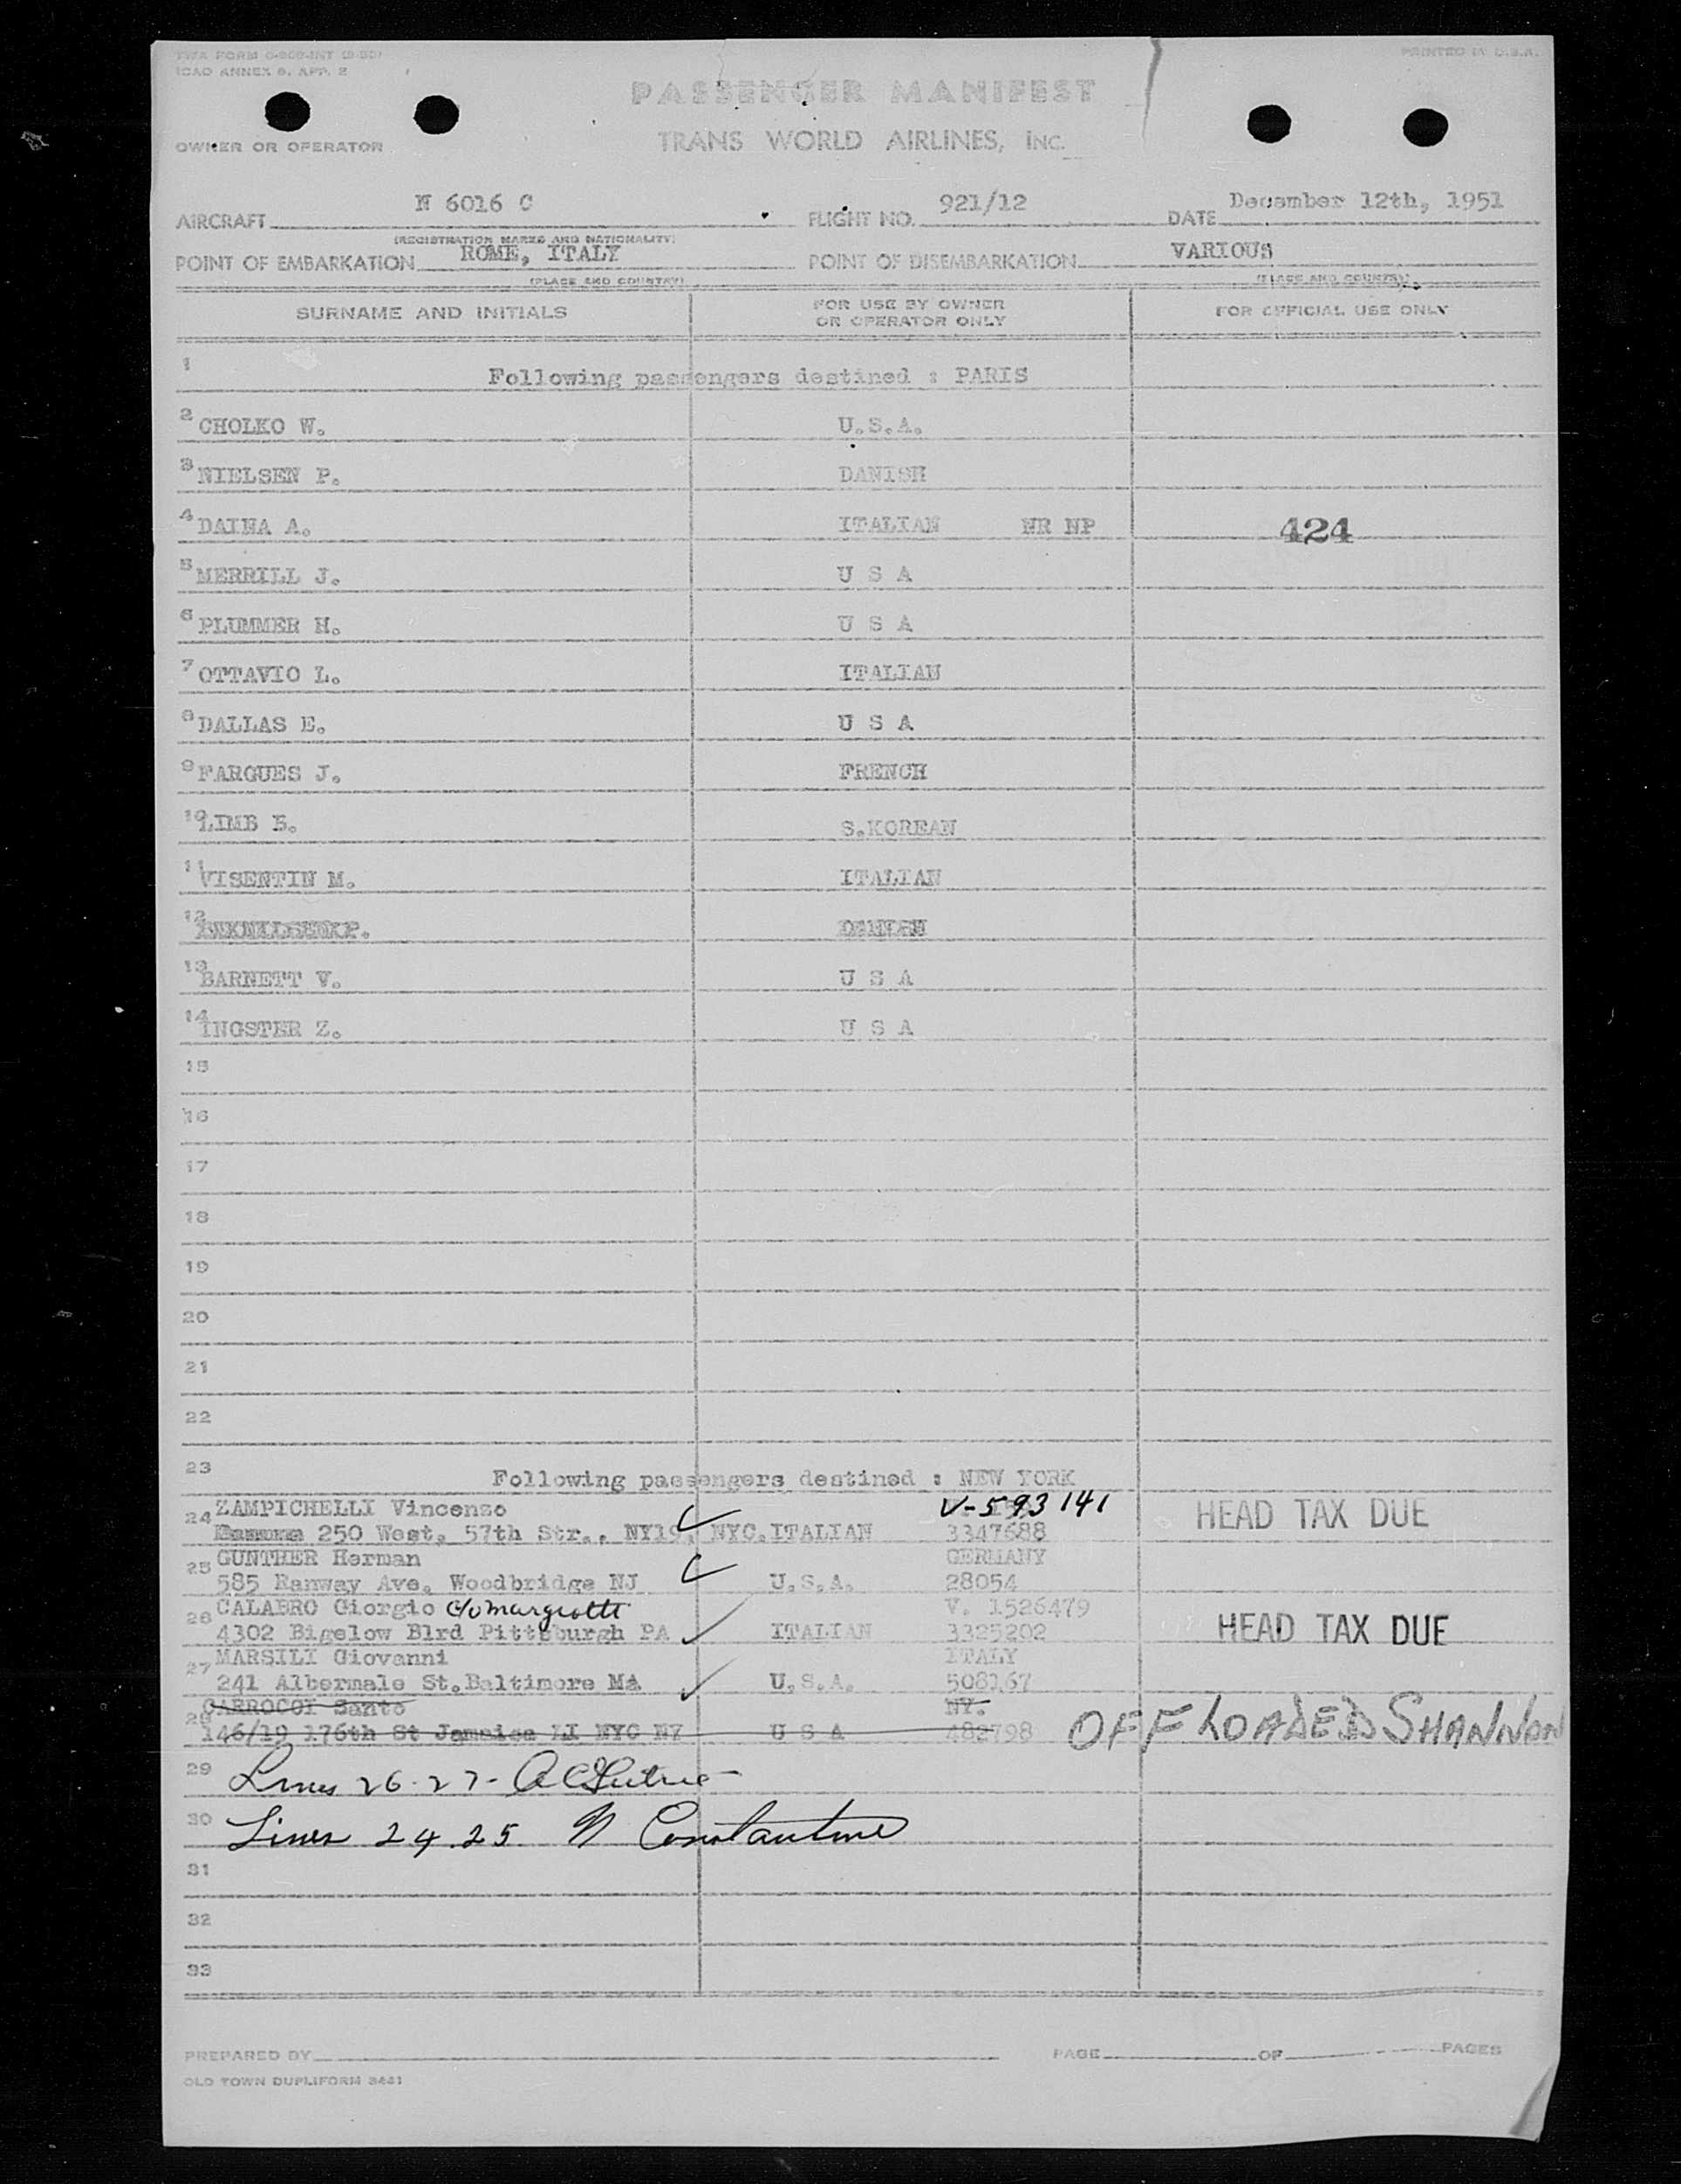 TWA FORM
ICAO ANNEX 9, APP. 2
PRINTED IN U.S.A.
PASSENGER MANIFEST
OWNER OR OPERATOR
TRANS WORLD AIRLINES, INC.
AIRCRAFT N 6016 C FLIGHT NO. 921/12 DATE December 12th, 1951
(REGISTRATION MARKS AND NATIONALITY)
POINT OF EMBARKATION ROME, ITALY POINT OF DISEMBARKATION VARIOUS
(PLACE AND COUNTRY) (PLACE AND COUNTRY)
SURNAME AND INITIALS FOR USE BY OWNER OR OPERATOR ONLY FOR OFFICIAL USE ONLY
1 Following passengers destined : PARIS
2 CHOLKO W. U.S.A.
3 NIELSEN P. DANISH
4 DAINA A. ITALIAN NR NP 424
5 MERRILL J. U S A
6 PLUMMER H. U S A
7 OTTAVIO L. ITALIAN
8 DALLAS E. U S A
9 FARGUES J. FRENCH
10 LIMB B. S.KOREAN
11 VISENTIN M. ITALIAN
12
13 BARNETT V. U S A
14 INGSTER Z. U S A
15
16
17
18
19
20
21
22
23 Following passengers destined : NEW YORK
24 ZAMPICHELLI Vincenzo V-593141 HEAD TAX DUE
250 West. 57th Str., NY19, NYC. ITALIAN 3347688
25 GUNTHER Herman GERMANY
585 Ranway Ave. Woodbridge NJ U.S.A. 28054
26 CALABRO Giorgio c/o Margiotti V. 1526479
4302 Bigelow Blrd Pittsburgh PA ITALIAN 3325202 HEAD TAX DUE
27 MARSILI Giovanni ITALY
241 Albermale St.Baltimore MA U.S.A. 508167
28 CARROCOI Santo NY.
146/19 176th St Jamaica LI NYC NY U S A 482798 OFFLOADED SHANNON
29 Lines 26-27-
30 Lines 24.25. N Constantine
31
32
33
PREPARED BY PAGE OF PAGES
OLD TOWN DUPLIFORM 3441